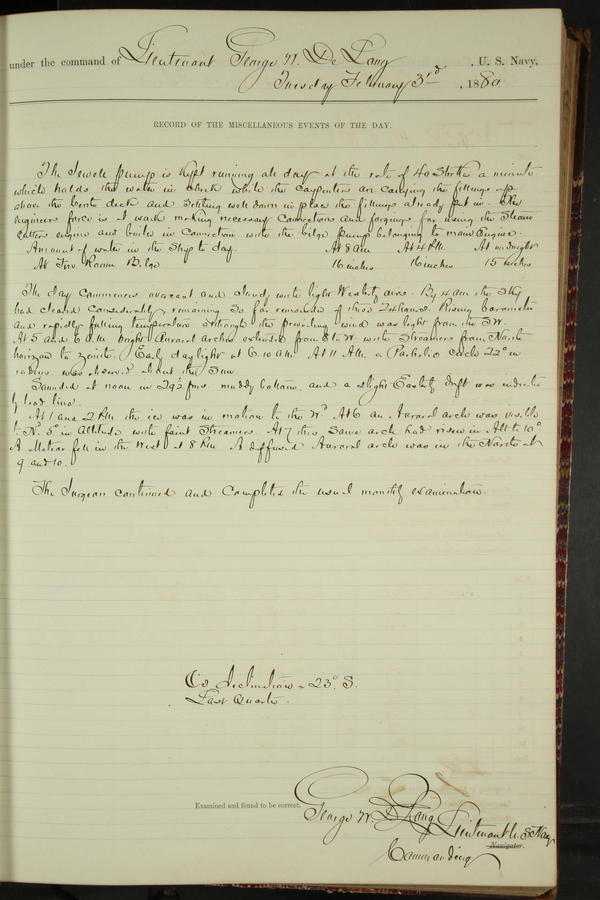 under the command of Lieutenant George W. De Long, U. S. Navy,
Tuesday February 3rd, 1880
RECORD OF THE MISCELLANEOUS EVENTS OF THE DAY.
The Sewell pump is kept running all day at the rate of 40 Strokes a minute
which holds the water in check while the carpenters are carrying the fillings up
above the berth deck and settling well down in place the fillings already put in. The
engineers force is at work making necessary connections and forgings for using the Steam
cutters engine and boiler in connection with the bilge pump belonging to main Engine.
Amount of water in the Ship to day. At 8 am At 4 P.M. At midnight
At Fire Room Bilge 16 inches 16 inches 15 inches
The day commences overcast and cloudy with light Westerly airs. By 4 am the Sky
had cleared considerably remaining so for remainder of these 24 hours. Rising barometer
and rapidly falling temperature although the prevailing wind was light from the SW.
At 5 and 6 a.m. bright Auroral Arches extended from E to W. with Streamers from North
horizon to zenith. Early daylight at 6.10 a.m. At 11 A.M. a Parhelic circle 22° in
radius was observed about the Sun.
Sounded at noon in 29½ fms. muddy bottom. and a slight Easterly drift was indicated
by lead line.
At 1 and 2 P.M. the ice was in motion to the Wd. At 6 an Auroral arch was visible
to Nd. 5° in altitude with faint Streamers. At 7 this same arch had risen in Alt to 10°
A Meteor fell in the West at 8 P.M. A diffused Auroral arch was in the North at
9 and 10.
The Surgeon continued and completed the usual monthly examination.
declination = 23° S.
Last Quarter.
Examined and found to be correct.
George W. De Long Lieutenant U. S. Navy
Navigator.
Commanding